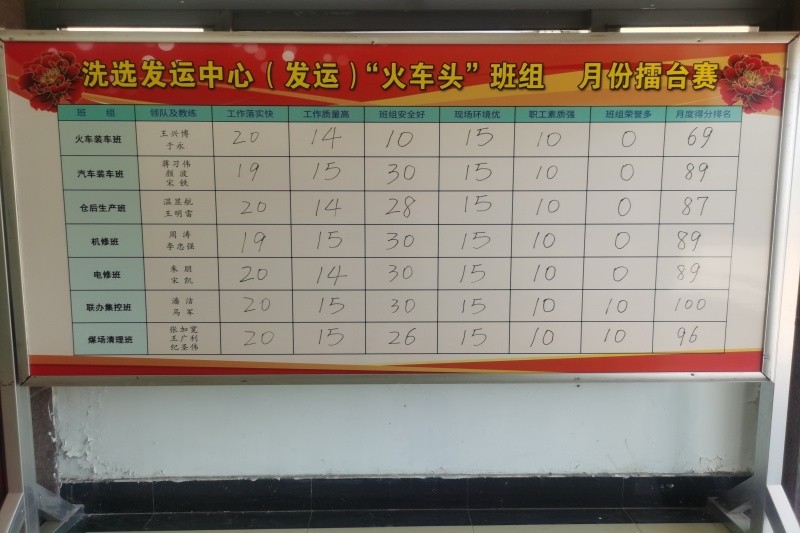 洗选发运中心(发运)“火车头”班组 月份擂台赛
班 组 领队及教练 工作落实快 工作质量高 班组安全好 现场环境优 职工素质强 班组荣誉多 月度得分排名
火车装车班 王兴博 于永 20 14 10 15 10 0 69
汽车装车班 蒋习伟 颜波 宋铁 19 15 30 15 10 0 89
仓后生产班 温显航 王明雷 20 14 28 15 10 0 87
机修班 周涛 李忠强 19 15 30 15 10 0 89
电修班 朱朋 宋凯 20 14 30 15 10 0 89
联办集控班 潘洁 马军 20 15 30 15 10 10 100
煤场清理班 张加宽 王广利 纪圣伟 20 15 26 15 10 10 96